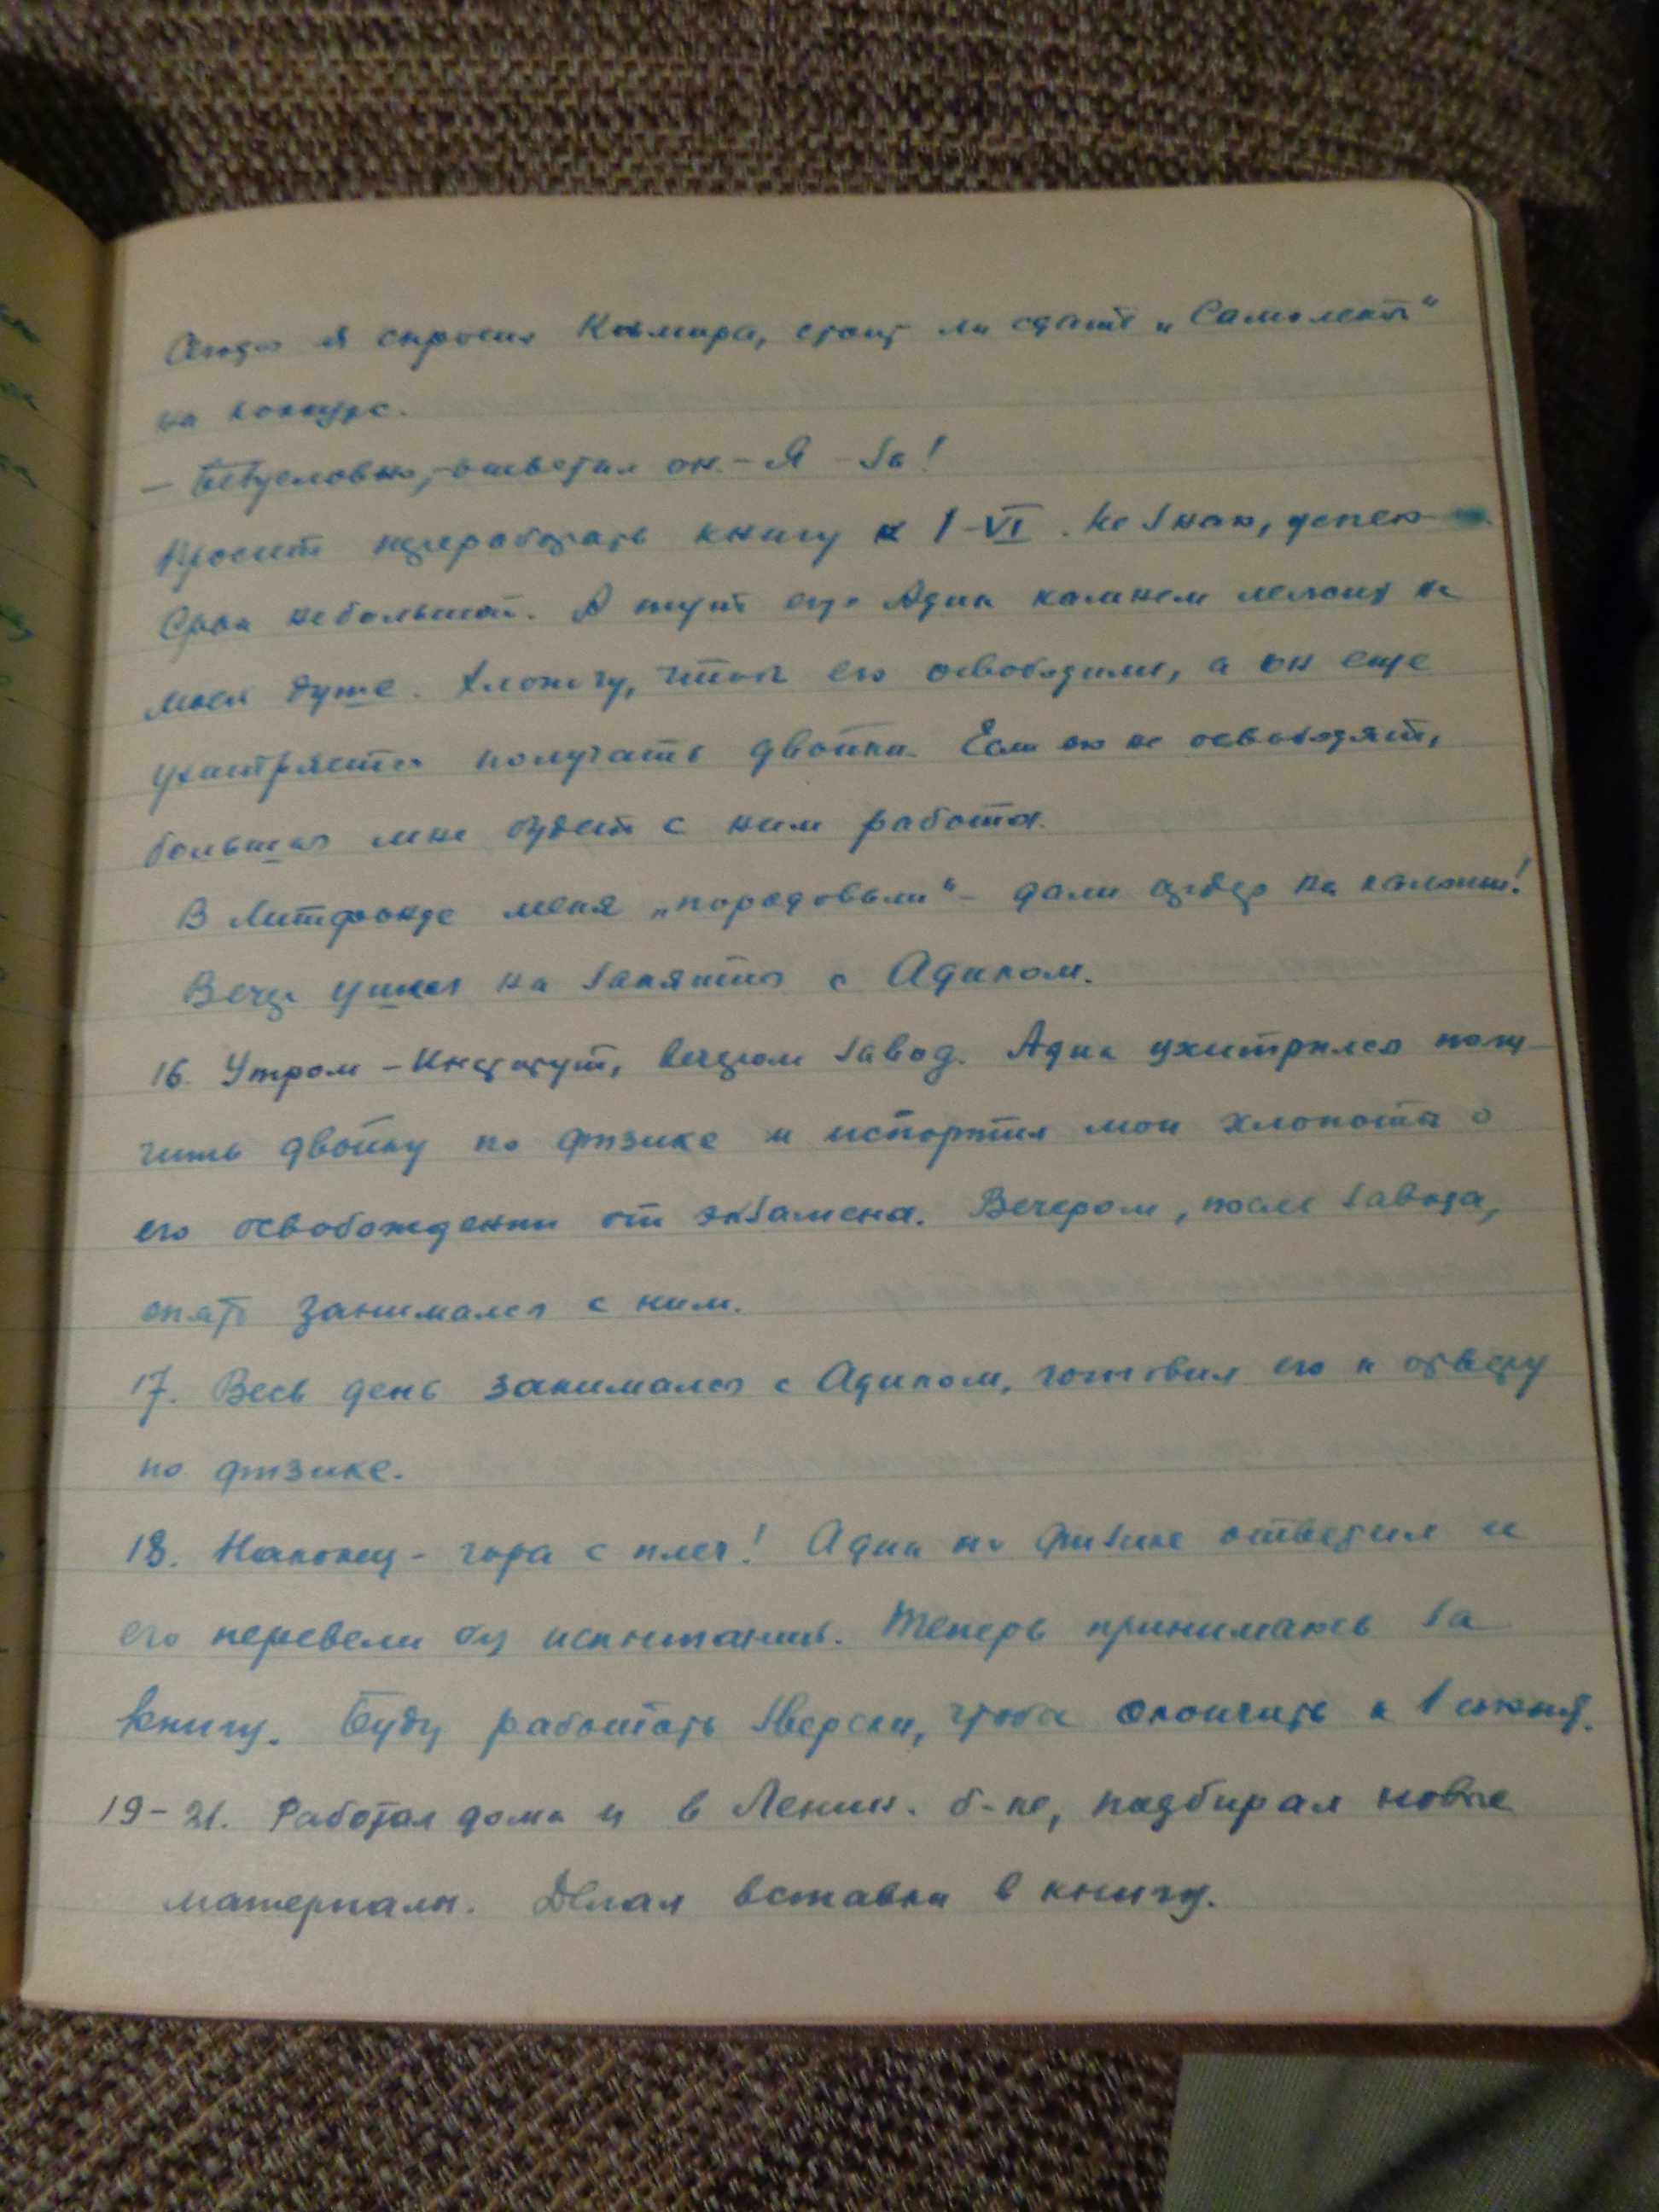 я спросил Компира, стоит ли сдать „Самолеты"
на конкурс.
— Безусловно, – ответил он. – Я – за!
Просит переработать книгу к 1-VI. Не знаю, успею
Срок небольшой. А тут еще Адик камнем лежит на
моей душе. Хлопочу, чтоб его освободили, а он еще
ухитряется получать двойки. Если его не освободят,
большая мне будет с ним работа.
В Литфонде меня „порадовали" – дали ордер на
Вечер ушел на занятия с Адиком.
16. Утром – Институт, вечером завод. Адик ухитрился полу-
чить двойку по физике и испортил мои хлопоты о
его освобождении от экзамена. Вечером, после завода,
опять занимался с ним.
17. Весь день занимался с Адиком, готовил его к ответу
по физике.
18. Наконец – гора с плеч! Адик по физике ответил и
его перевели без испытаний. Теперь принимаюсь за
книгу. Буду работать зверски, чтобы окончить к 1 июня.
19-21. Работал дома и в Ленин. б-ке, подбирал новые
материалы. Делал вставки в книгу.